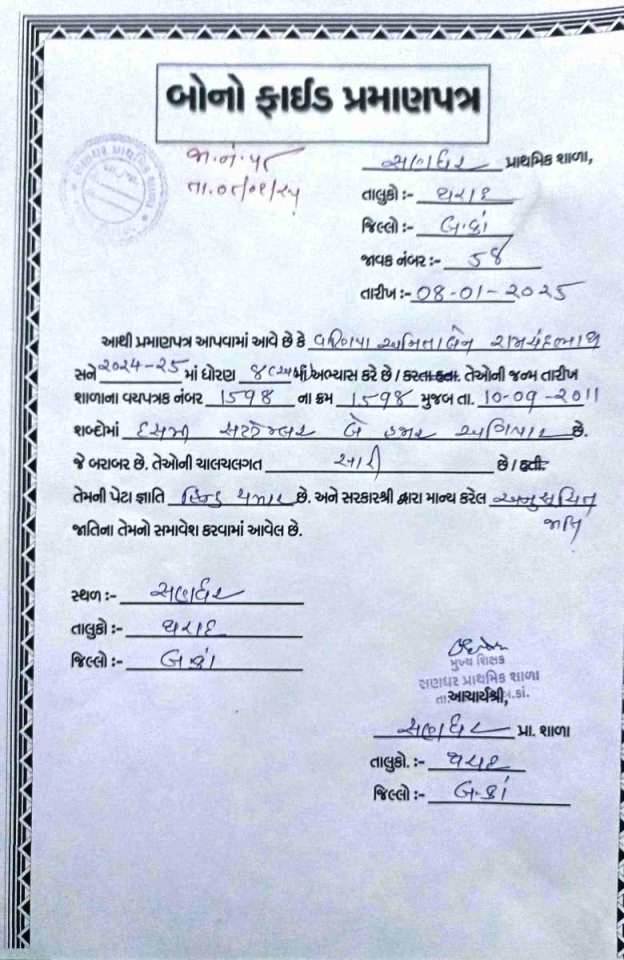 બોનો ફાઈડ પ્રમાણપત્ર
સણધર પ્રાથમિક શાળા
જા.નં.૫૮
તા.૦૮/૦૧/૨૫
સણધર પ્રાથમિક શાળા,
તાલુકો :- થરાદ
જિલ્લો :- બ.કાં
જાવક નંબર :- ૫૪
તારીખ :- 08-01-૨૦૨૫
આથી પ્રમાણપત્ર આપવામાં આવે છે કે અમિતાબેન રામચંદભાઈ
સને ૨૦૨૪-૨૫ માં ધોરણ અભ્યાસ કરે છે / કરતા હતા. તેઓની જન્મ તારીખ
શાળાના વયપત્રક નંબર 1598 ના ક્રમ 1598 મુજબ તા. 10-09-૨૦11
શબ્દોમાં દસમી સપ્ટેમ્બર બે હજાર અગિયાર છે.
જે બરાબર છે. તેઓની ચાલચલગત સારી છે / હતી.
તેમની પેટા જ્ઞાતિ હિન્દુ ચમાર છે. અને સરકારશ્રી દ્વારા માન્ય કરેલ અનુસૂચિત
જાતિ
જાતિના તેમનો સમાવેશ કરવામાં આવેલ છે.
સ્થળ :- સણધર
તાલુકો :- થરાદ
જિલ્લો :- બ.કાં
મુખ્ય શિક્ષક
સણધર પ્રાથમિક શાળા
તા. આચાર્યશ્રી, બ.કાં.
સણધર પ્રા. શાળા
તાલુકો. :- થરાદ
જિલ્લો :- બ.કાં